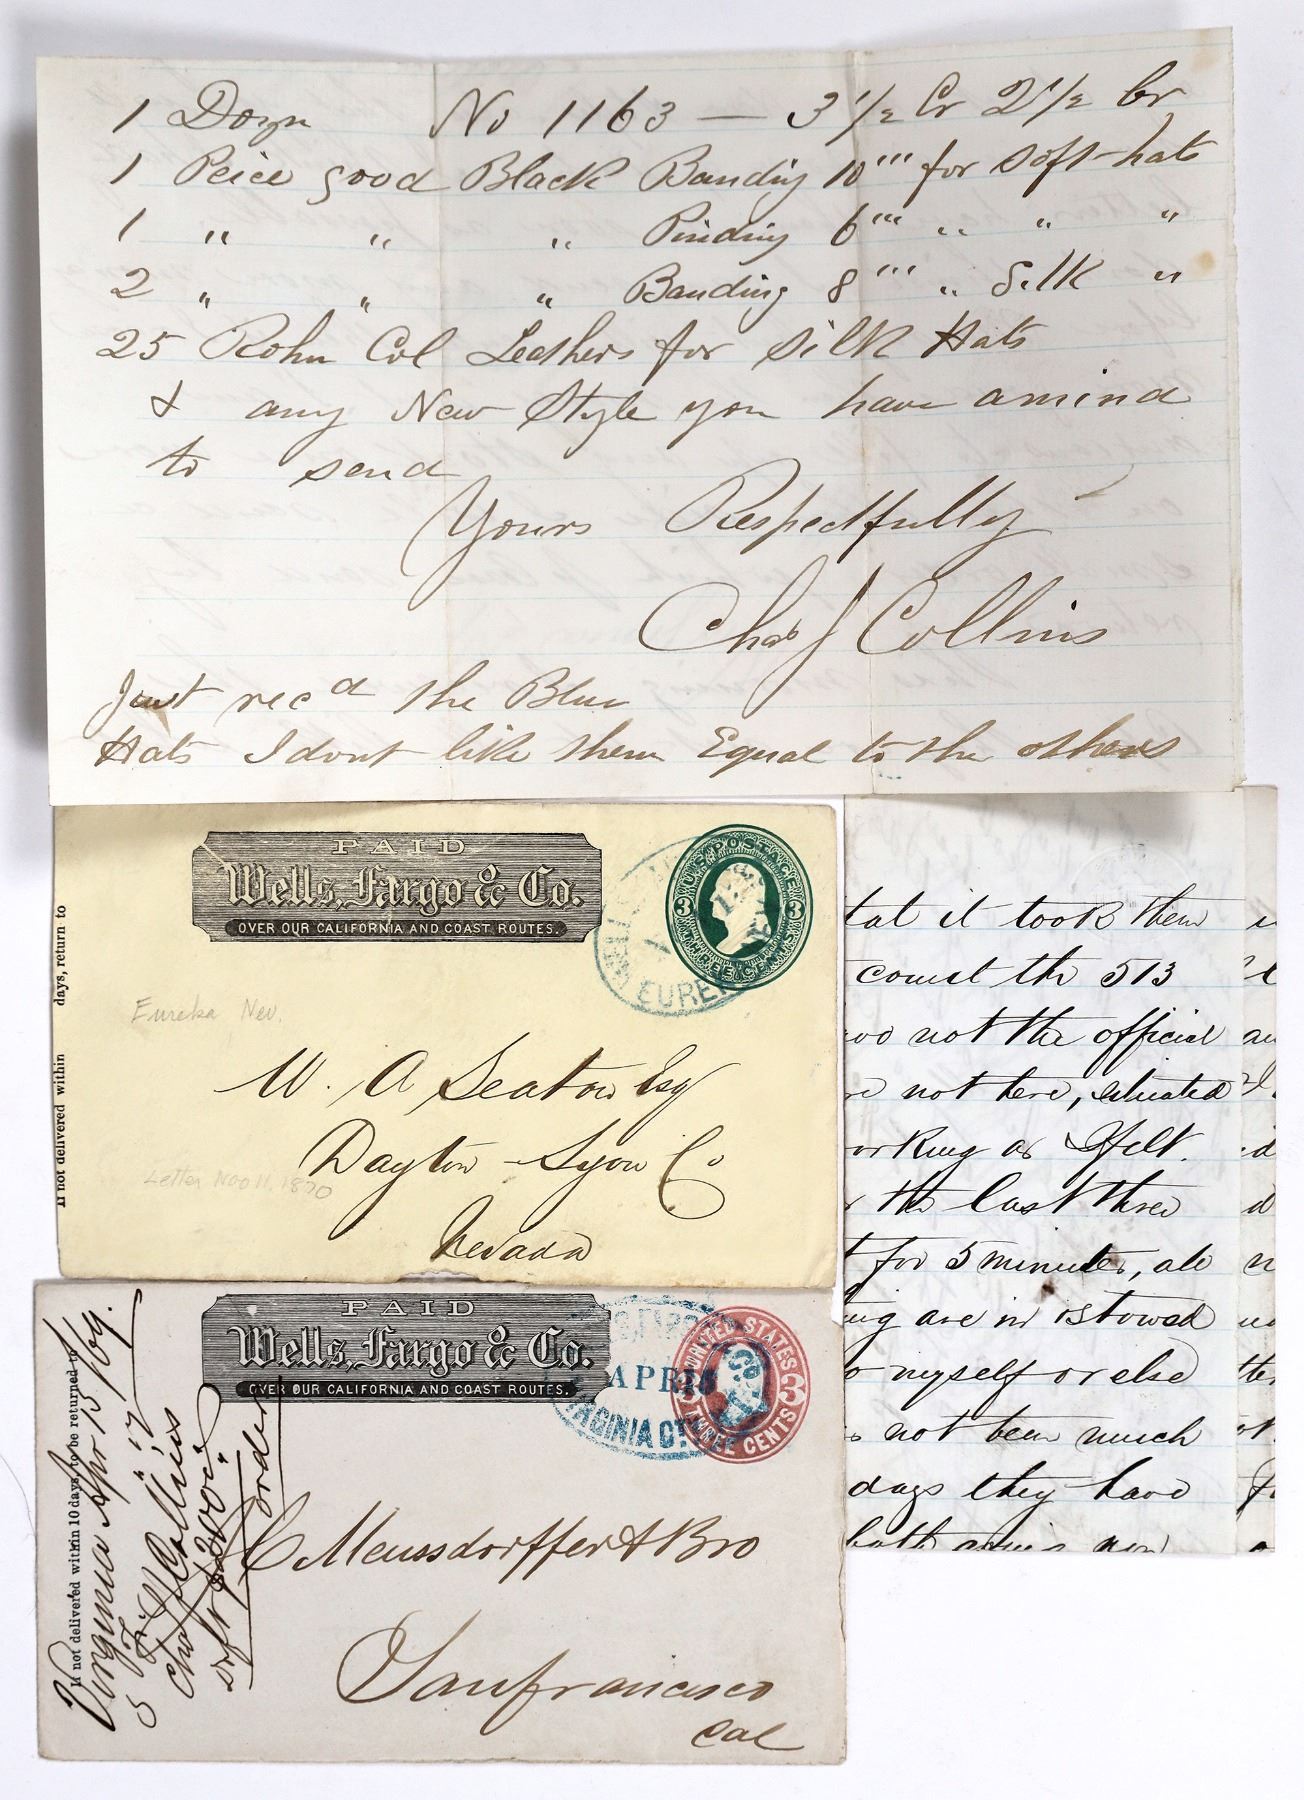 1 Dozn No 1163 — 3 1/2 Cr 2 1/2 br
1 Peice good Black Banding 10''' for soft-hats
1 " " " Binding 6''' " " "
2 " " " Banding 8''' " Silk "
25 Rohn Col Leathers for Silk Hats
& any New Style you have amind
to send
Yours Respectfully
Chas J Collins
Just recd the Blue
Hats I dont like them Equal to the others
PAID
Wells, Fargo & Co.
OVER OUR CALIFORNIA AND COAST ROUTES.
U.S. POSTAGE
3 3
EUREK
If not delivered within days, return to
Eureka Nev.
W. A Seaton Esq
Dayton - Lyon Co
Nevada
Letter Nov 11, 1870
tal it took them
count the 513
not the official
not here, situated
orking as Yelt.
the last three
for 5 minutes, all
ng are in stowed
o myself or else
not been much
days they have
both now
PAID
Wells, Fargo & Co.
OVER OUR CALIFORNIA AND COAST ROUTES.
APR 15
VIRGINIA CY
UNITED STATES
3
THREE CENTS
If not delivered within 10 days, to be returned to
Virginia Apr 15/69.
Chas J Collins
order
C Meussdorffer & Bro
Sanfrancisco
Cal